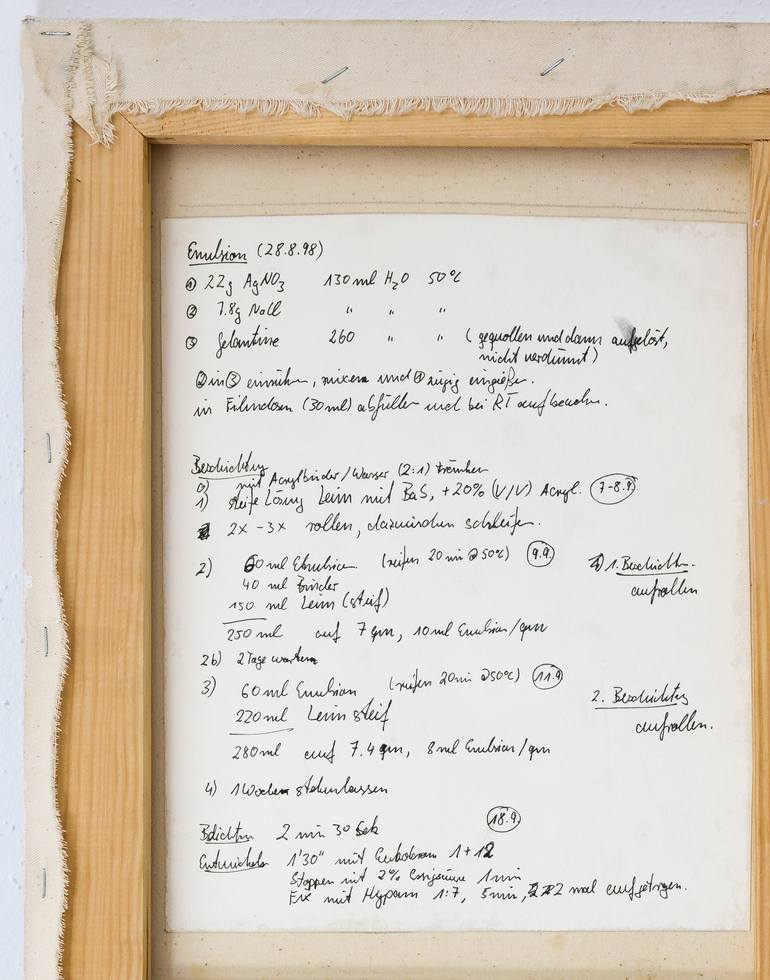 Emulsion (28.8.98)
① 22g AgNO3 130 ml H2O 50°C
② 7.8g NaCl " " "
③ Gelantine 260 " " (gequollen und dann aufgelöst,
nicht verdünnt)
② in ③ einrühren, mixen und ① zügig eingießen.
in Filmdosen (30 ml) abfüllen und bei RT aufbewahren.
Beschichtung
0) mit Acrylbinder/Wasser (2:1) tränken
1) steife Lösung Leim mit BaS, +20% (V/V) Acryl. 7-8.9.
2x -3x rollen, dazwischen schleifen.
2) 60 ml Emulsion (reifen 20 min @ 50°C) 9.9. 1. Beschichtn.
40 ml Binder aufrollen
150 ml Leim (steif)
250 ml auf 7 qm, 10 ml Emulsion/qm
2b) 2 Tage warten
3) 60 ml Emulsion (reifen 20 min @ 50°C) 11.9 2. Beschichtung
220 ml Leim steif aufrollen.
280 ml auf 7.4 qm, 8 ml Emulsion/qm
4) 1 Woche stehenlassen
Belichten 2 min 30 Sek 18.9.
Entwickeln 1'30" mit 1+12
Stoppen mit 2% Essigsäure 1 min
Fix mit Hypam 1:7, 5 min, 2 mal aufgetragen.